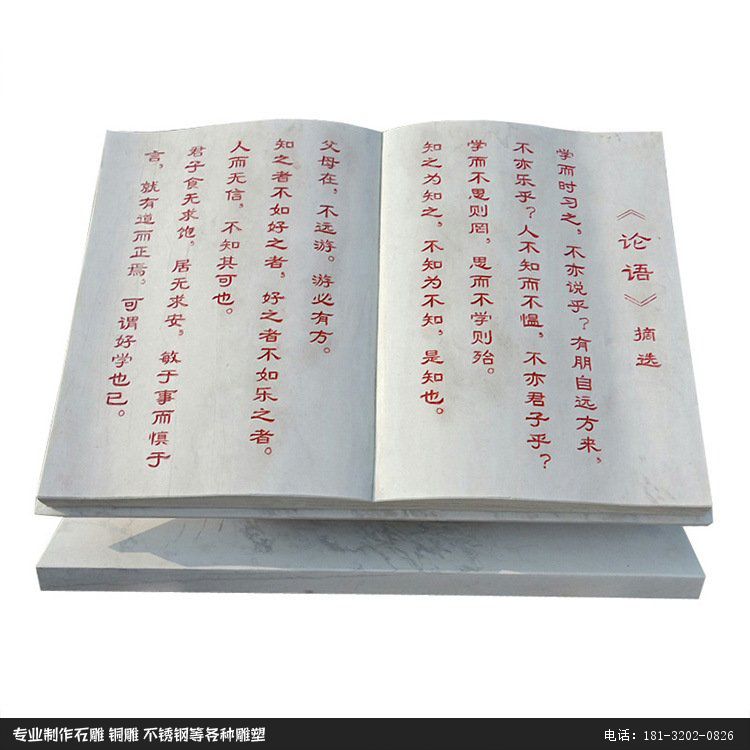 《论语》摘选
学而时习之，不亦说乎？有朋自远方来，
不亦乐乎？人不知而不愠，不亦君子乎？
学而不思则罔，思而不学则殆。
知之为知之，不知为不知，是知也。
父母在，不远游。游必有方。
知之者不如好之者，好之者不如乐之者。
人而无信，不知其可也。
君子食无求饱，居无求安，敏于事而慎于
言，就有道而正焉，可谓好学也已。
专业制作石雕 铜雕 不锈钢等各种雕塑
电话：181-3202-0826